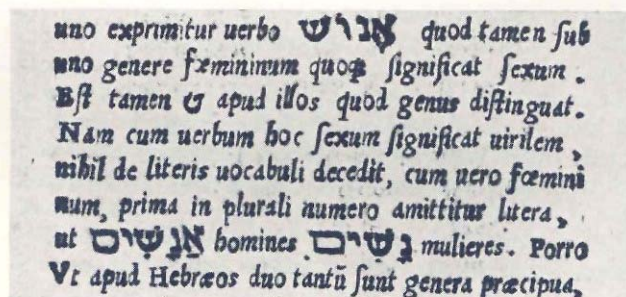 uno exprimitur uerbo אֱנוֹשׁ quod tamen ſub
uno genere fæmininum quoqꝫ ſignificat ſexum.
Eſt tamen & apud illos quod genus diſtinguat.
Nam cum uerbum hoc ſexum ſignificat uirilem,
nihil de literis uocabuli decedit, cum uero fœmini
num, prima in plurali numero amittitur litera,
ut אֲנָשִׁים homines נָשִׁים mulieres. Porro
Vt apud Hebræos duo tantũ ſunt genera præcipua,